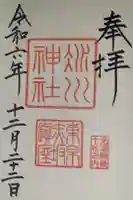 奉拝
氷川
神社
令和六年
十二月二十二日